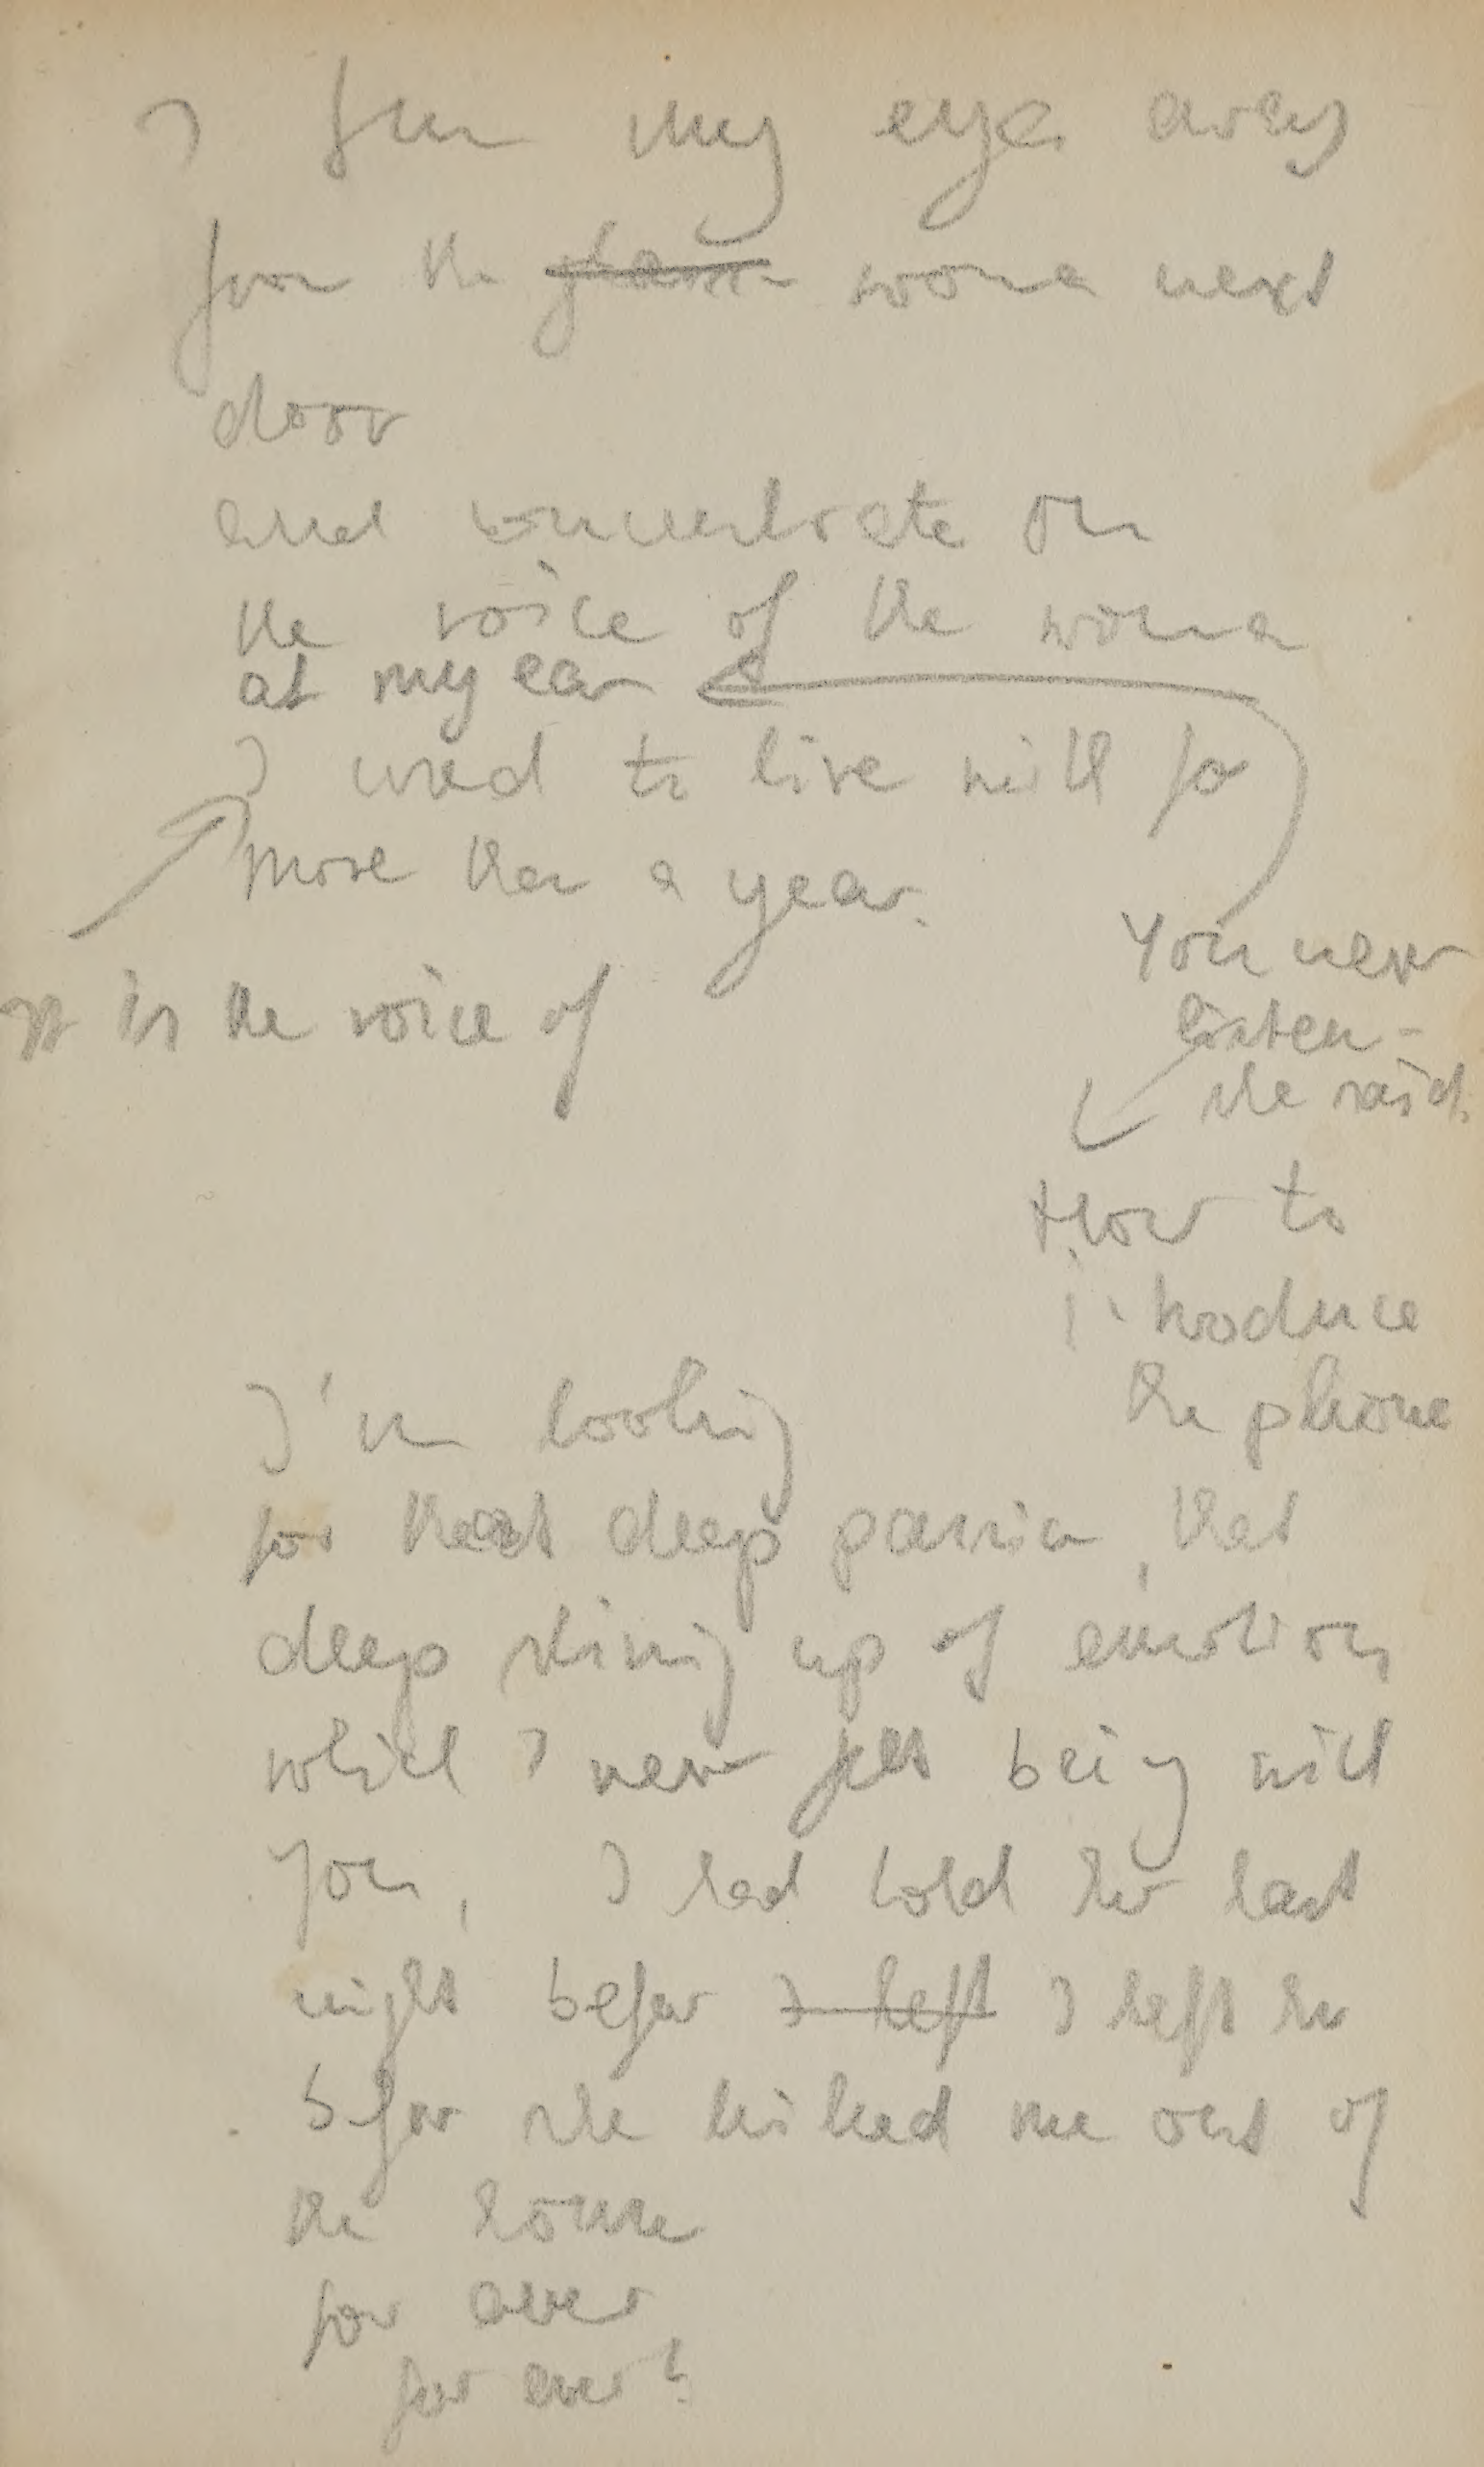 I turn my eyes away
from the woman next
door
and concentrate on
the voice of the woman
at my ear
I used to live with for
more than a year.
It is the voice of
You never
listen -
she said.
How to
introduce
the phone
I'm looking
for that deep passion, that
deep stirring up of emotions
which I never felt being with
you, I had told her last
night before I left I left her
before she kicked me out of
the house
for ever
for ever?